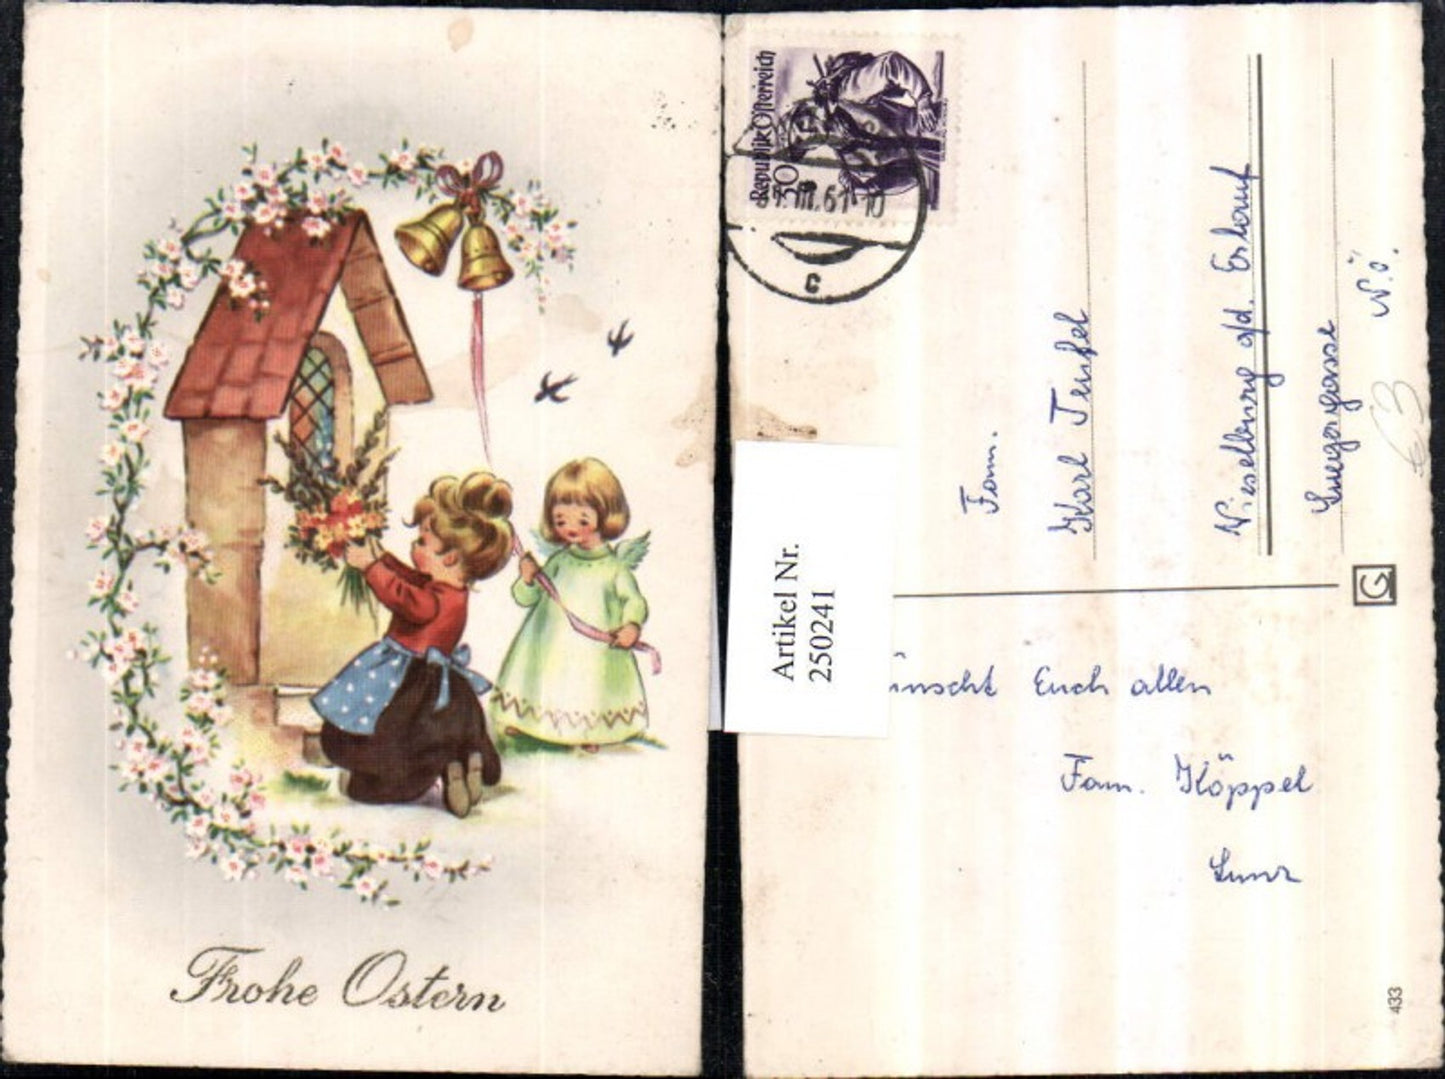 Frohe Ostern
Republik Österreich
30
61-10
c
Artikel Nr.
250241
Fam.
Karl Teufel
Wieselburg a/d. Erlauf
N.Ö.
G
€3
ünscht Euch allen
Fam. Köppel
Lunz
433